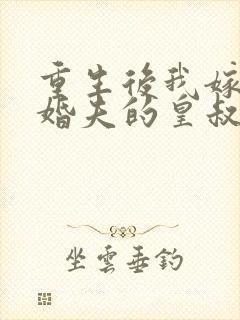 重生後我嫁
婚夫的皇叔
坐雲垂釣